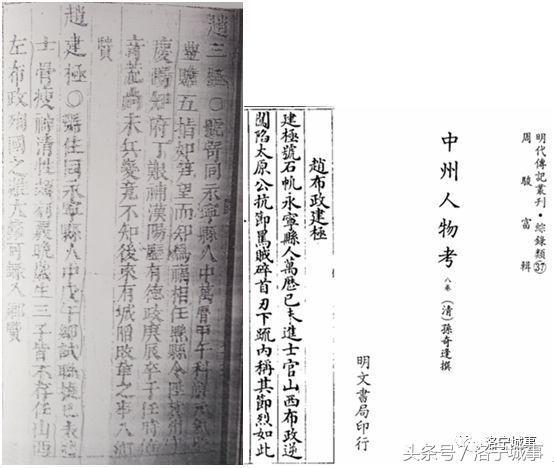 明代傳記叢刊・綜錄類㊲
周駿富 輯
中州人物考 八卷 (清)孫奇逢撰
明文書局印行
趙布政建極
建極號石帆永寧縣人萬歷己未進士官山西布政逆
闖陷太原公抗節罵賊碎首刃下疏內稱其節烈如此
趙三極〇號寄同永寧縣人中萬曆甲午科
豐贍五指如筆望而知為福相任縣令陞
慶陽知府丁艱補漢陽歷有德政庚辰卒于任時值
荒歲未兵燹竟不知後來有城陷政革之事入鄉
賢
趙建極〇號在同永寧縣人中戊午鄉試聯捷己未進
士骨瘦神清性晚歲生三子皆不存任山西
左布政殉國之難大節可錄入鄉賢
洛宁城事
头条号 / 洛宁城事